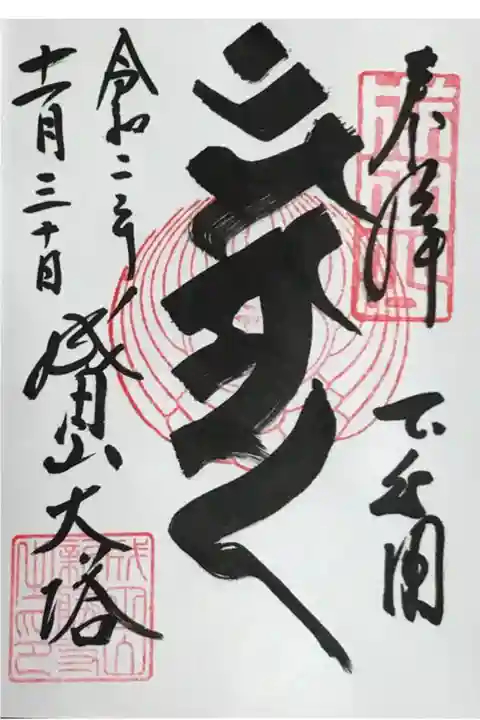 奉拝
下総国
令和二年
十一月三十日
成田山大塔
成田山
新勝寺
之印